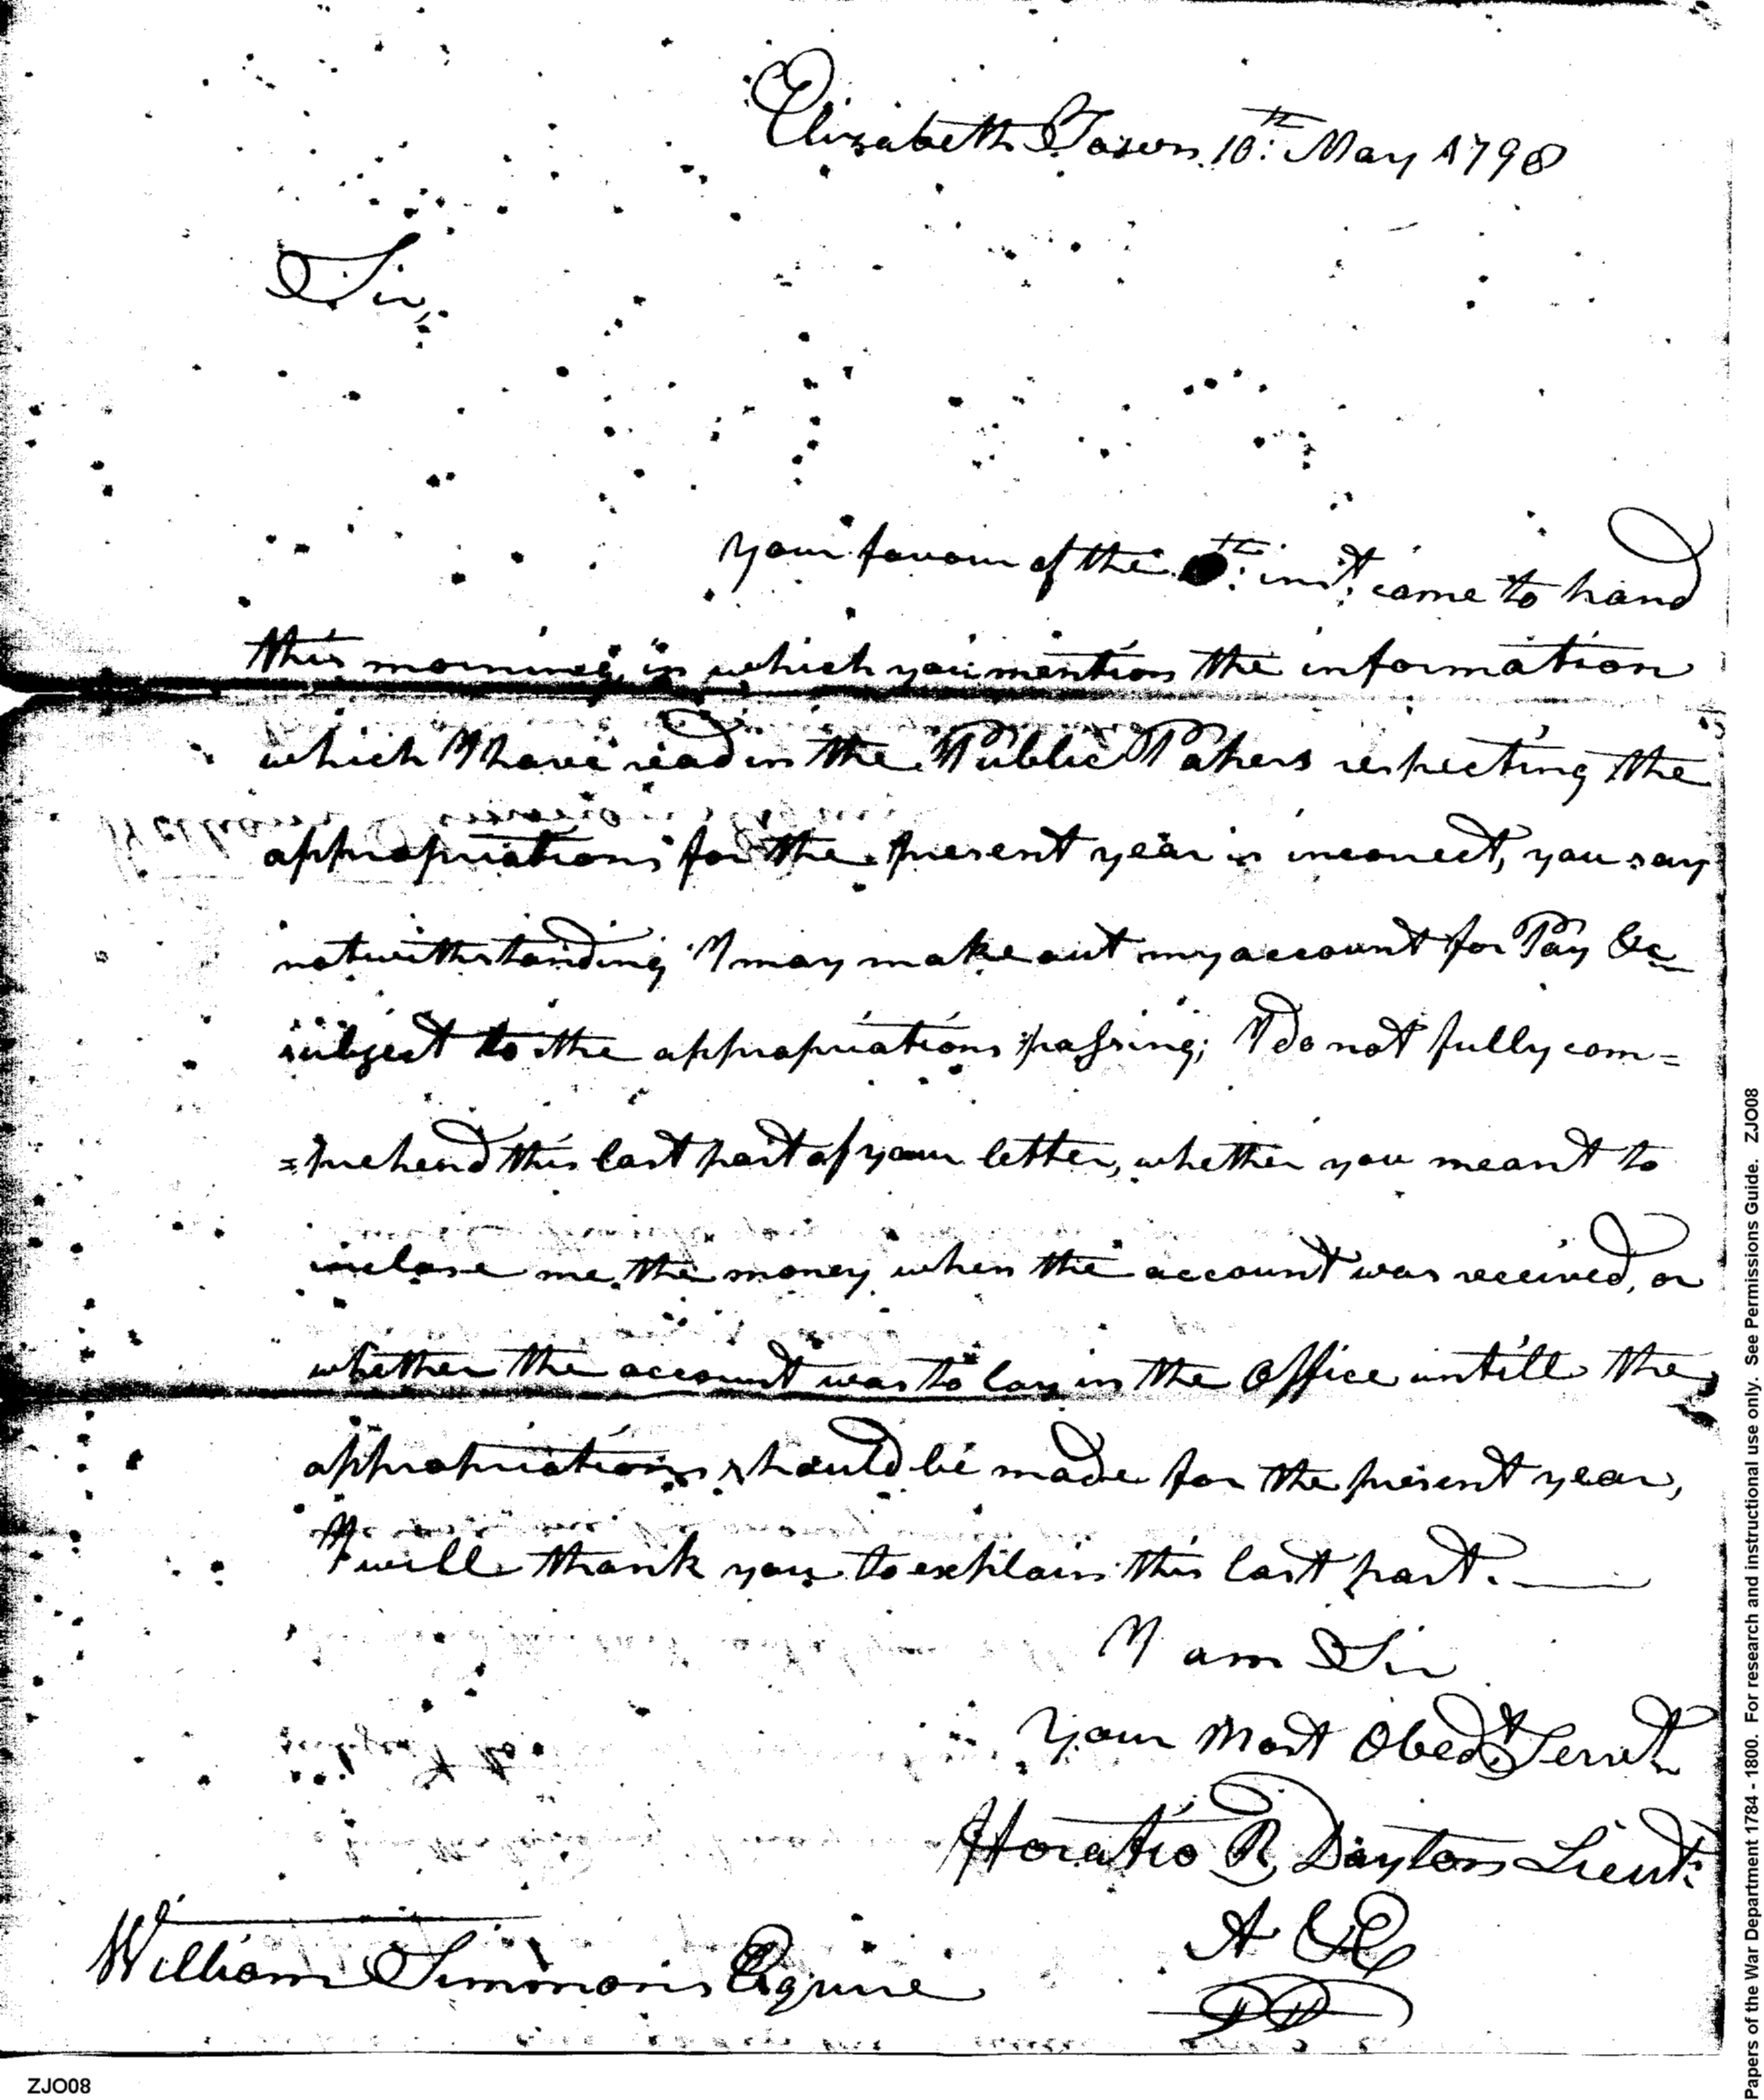 Elizabeth Town 10th: May 1798
Sir,
your favour of the th: inst: came to hand
this morning, in which you mention the information
which I have read in the Public Papers respecting the
appropriations for the present year is incorrect, you say
notwithstanding I may make out my account for Pay &c
subject to the appropriations passing; I do not fully com=
=prehend this last part of your letter, whether you meant to
inclose me the money when the account was received, or
whether the account was to lay in the Office untill the
appropriations should be made for the present year,
I will thank you to explain this last part. —
I am Sir
your Most Obedt Servt
Horatio R Dayton Lieut:
A & E
William Simmons Esquire
ZJO08
Papers of the War Department 1784 - 1800. For research and instructional use only. See Permissions Guide. ZJO08